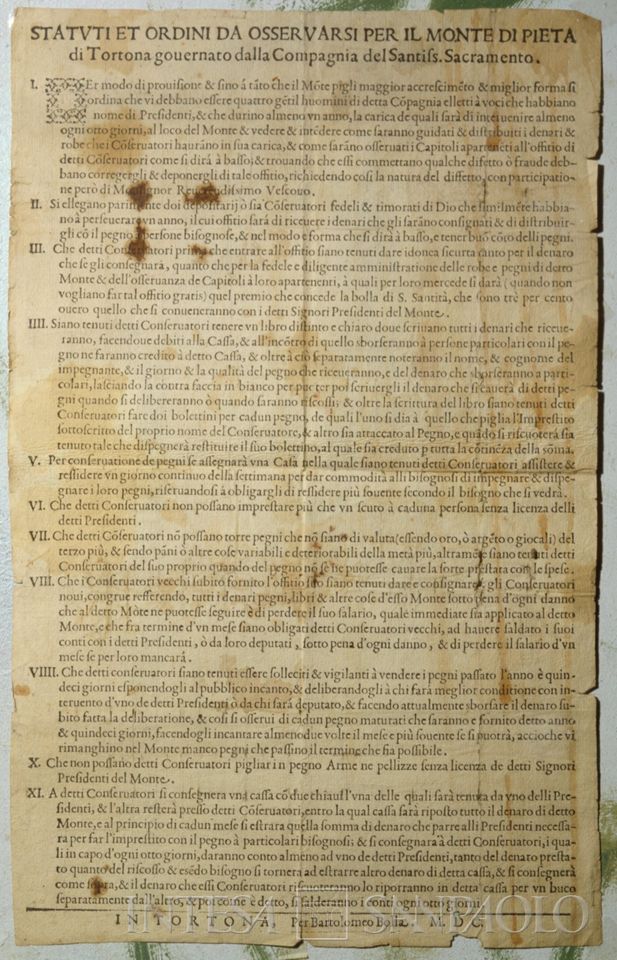 STATVTI ET ORDINI DA OSSERVARSI PER IL MONTE DI PIETA
di Tortona gouernato dalla Compagnia del Santiss. Sacramento.
I. PEr modo di prouisione & sino á tãto che il Mõte pigli maggior accrescimẽto & miglior forma si
ordina che vi debbano essere quattro gẽtil huomini di detta Cõpagnia elletti à voci che habbiano
nome di Presidenti, & che durino almeno vn anno, la carica de quali sarà di interuenire almeno
ogni otto giorni, al loco del Monte & vedere & intẽdere come saranno guidati & distribuiti i denari &
robe che i Cõseruatori haurãno in sua carica, & come sarãno osseruati i Capitoli apartenẽti all'offitio di
detti Cõseruatori come si dirà à basso; & trouando che essi commettano qualche difetto ò fraude deb-
bano corregergli & deponergli di tale offitio, richiedendo così la natura del diffetto, con participatio-
ne però di Monsignor Reuerendissimo Vescouo.
II. Si ellegano parimente doi depositarij ò sia Cõseruatori fedeli & timorati di Dio che similmẽte habbia-
no à perseuerar vn anno, il cui offitio sarà di riceuere i denari che gli sarãno consignati & di distribuir-
gli cõ il pegno à persone bisognose, & nel modo e forma che si dirà à basso, e tener buõ cõto delli pegni.
III. Che detti Conseruatori prima che entrare all'offitio siano tenuti dare idonea sicurta tanto per il denaro
che se gli consegnarà, quanto che per la fedele e diligente amministratione delle robe e pegni di detto
Monte & dell'osseruanza de Capitoli à loro apartenenti, à quali per loro mercede si darà (quando non
vogliano far tal offitio gratis) quel premio che concede la bolla di S. Santità, che sono trè per cento
ouero quello che si conueneranno con i detti Signori Presidenti del Monte.
IIII. Siano tenuti detti Conseruatori tenere vn libro distinto e chiaro doue scriuano tutti i denari che riceue-
ranno, facendoue debiti alla Cassa, & all'incõtro di quello sborseranno à persone particolari con il pe-
gno ne faranno credito à detto Cassa, & oltre à ciò separatamente noteranno il nome, & cognome del
impegnante, & il giorno & la qualità del pegno che riceueranno, e del denaro che sborseranno a parti-
colari, lasciando la contra faccia in bianco per puoter poi scriuergli il denaro che si cauerà di detti pe-
gni quando si delibereranno ò quando saranno riscossi; & oltre la scrittura del libro siano tenuti detti
Conseruatori fare doi bolettini per cadun pegno, de quali l'uno si dia à quello che piglia l'Imprestito
sottoscritto del proprio nome del Conseruatore, & altro sia attaccato al Pegno, e quãdo si riscuoterà sia
tenuto tale che dispegnerà restituire il suo bolettino, al quale sia creduto p tutta la cõtinẽza della sõma.
V. Per conseruatione de pegni se assegnarà vna Casa nella quale siano tenuti detti Conseruatori assistere &
ressidere vn giorno continuo della settimana per dar commodità alli bisognosi di impegnare & dispe-
gnare i loro pegni, riseruandosi à obligargli di ressidere più souente secondo il bisogno che si vedrà.
VI. Che detti Conseruatori non possano imprestare più che vn scuto à caduna persona senza licenza delli
detti Presidenti.
VII. Che detti Cõseruatori nõ possano torre pegni che nõ siano di valuta (essendo oro, ò argẽto o giocali) del
terzo più, & sendo pãni ò altre cose variabili e deteriorabili della metà più, altramẽte siano tenuti detti
Conseruatori del suo proprio quando del pegno nõ se ne puotesse cauare la sorte prestata con le spese.
VIII. Che i Conseruatori vecchi subito fornito l'offitio suo siano tenuti dare e consignare à gli Conseruatori
noui, congrue refferendo, tutti i denari pegni, libri & altre cose d'esso Monte sotto pena d'ogni danno
che al detto Mõte ne puotesse seguire è di perdere il suo salario, quale immediate sia aplicato al detto
Monte, e che fra termine d'vn mese siano obligati detti Conseruatori vecchi, ad hauere saldato i suoi
conti con i detti Presidenti, ò da loro deputati, sotto pena d'ogni danno, & di perdere il salario d'vn
mese se per loro mancarà.
VIIII. Che detti conseruatori siano tenuti essere solleciti & vigilanti à vendere i pegni passato l'anno è quin-
deci giorni esponendogli al publico incanto, & deliberandogli à chi farà meglior conditione con in-
teruento d'vno de detti Presidenti ò da chi sarà deputato, & facendo attualmente sborsare il denaro su-
bito fatta la deliberatione, & così si osserui di cadun pegno maturati che saranno e fornito detto anno
& quindeci giorni, facendogli incantare almeno due volte il mese e più souente se si puotrà, accioche vi
rimanghino nel Monte manco pegni che passino il termine che sia possibile.
X. Che non possano detti Conseruatori pigliar in pegno Arme ne pellizze senza licenza de detti Signori
Presidenti del Monte.
XI. A detti Conseruatori si consegnera vna cassa cõ due chiaui l'vna delle quali sarà tenuta da vno delli Pre-
sidenti, & l'altra resterà presso detti Cõseruatori, entro la qual cassa sarà riposto tutto il denaro di detto
Monte, e al principio di cadun mese si estrara quella somma di denaro che parre alli Presidenti necessa-
ra per far l'imprestito con il pegno à particolari bisognosi; & si consegnarà à detti Conseruatori, i qua-
li in capo d'ogni otto giorni, daranno conto almeno ad vno de detti Presidenti, tanto del denaro presta-
to quanto del riscosso & esẽdo bisogno si tornera ad estrarre altro denaro di detta cassa, & si consegnerà
come sopra, & il denaro che essi Conseruatori riscuoteranno lo riporranno in detta cassa per vn buco
separatamente dall'altro, & poi come è detto, si salderanno i conti ogni otto giorni.
IN TORTONA, Per Bartolomeo Bolla. M. D C.
INTESA SANPAOLO